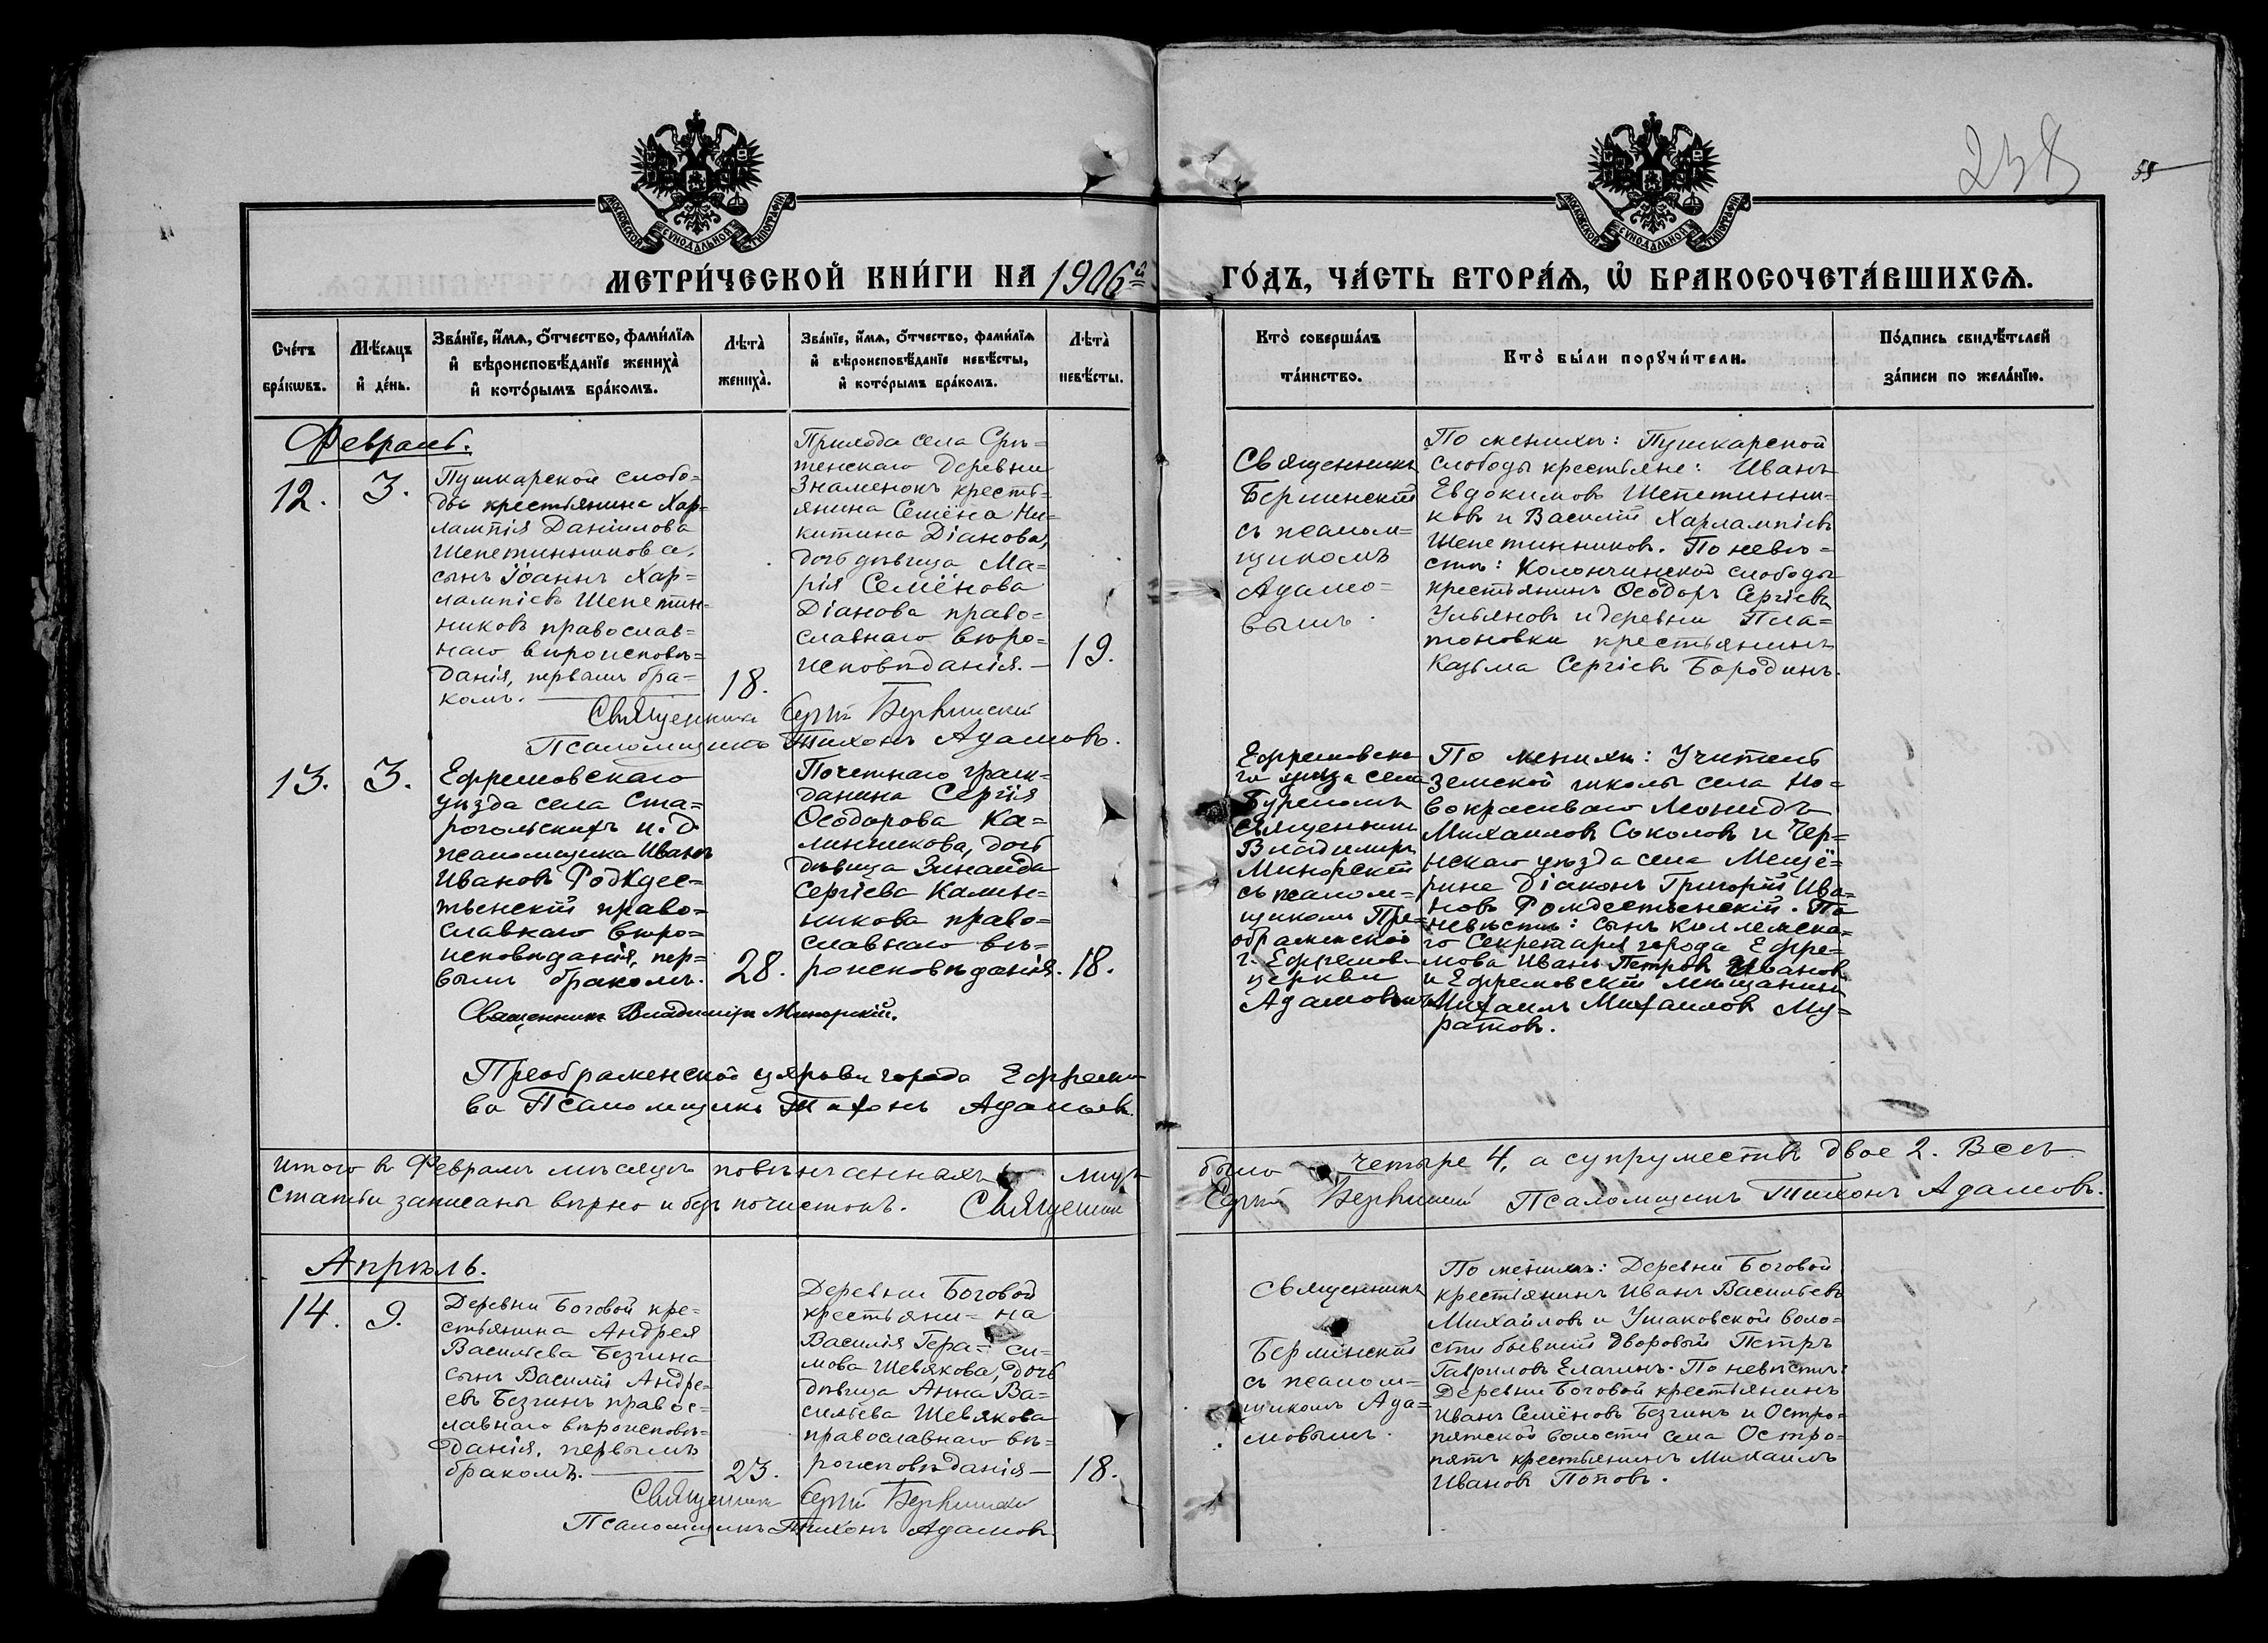 238
55
МОСКОВСКОЙ СѴНОДАЛЬНОЙ ТИПОГРАФІИ
МОСКОВСКОЙ СѴНОДАЛЬНОЙ ТИПОГРАФІИ
МЕТРИ́ЧЕСКОЙ КНИ́ГИ НА 1906й
ГО́ДЪ, ЧА́СТЬ ВТОРА́Ѧ, Ѡ҆ БРАКОСОЧЕТА́ВШИХСѦ.
Сче́тъ
бра́кѡвъ.
Мѣ́сѧцъ
и҆ де́нь.
Зва́нїе, и҆́мѧ, ѻ҆́тчество, фами́лїѧ
и҆ вѣроисповѣ́данїе жениха̀
и҆ кото́рымъ бра́комъ.
Лѣ́та̀
жениха̀.
Зва́нїе, и҆́мѧ, ѻ҆́тчество, фами́лїѧ
и҆ вѣроисповѣ́данїе невѣ́сты,
и҆ кото́рымъ бра́комъ.
Лѣ́та̀
невѣ́сты.
Кто̀ соверша́лъ
та́инство.
Кто̀ бы́ли порꙋчи́тели.
По́дпись свидѣ́телей
за́писи по жела́нїю.
Февраль.
12.
3.
Пушкарской слобо=
ды крестьянина Хар=
лампія Даніилова
Шепетинникова,
сынъ Іоаннъ Хар=
лампіевъ Шепетин=
никовъ православ=
наго вѣроисповѣ=
данія, первымъ бра=
комъ.
18.
Прихода села Срѣ=
тенскаго деревни
Знаменокъ кресть=
янина Семёна Ни=
китина Діанова,
дочь дѣвица Ма=
рія Семёнова
Діанова право=
славнаго вѣро=
исповѣданія.
19.
Священникъ
съ псалом=
щикомъ
Адамо=
вымъ.
По женихѣ: Пушкарской
слободы крестьяне: Иванъ
Евдокимовъ Шепетинни=
ковъ и Василій Харлампіевъ
Шепетинниковъ. По невѣ=
стѣ: слободы
крестьянинъ Ѳеодоръ Сергіевъ
Ульяновъ и деревни Пла=
тоновки крестьянинъ
Казьма Сергіевъ Бородинъ.
Священникъ Сергій
Псаломщикъ Тихонъ Адамовъ.
13.
3.
Ефремовскаго
уѣзда села Ста=
рогольскихъ и. д.
псаломщика Иванъ
Ивановъ Рождес=
твенскій право=
славнаго вѣро=
исповѣданія, пер=
вымъ бракомъ.
28.
Почетнаго граж=
данина Сергія
Ѳеодорова Ка=
линникова, дочь
дѣвица Зинаида
Сергіева Калин=
никова право=
славнаго вѣ=
роисповѣданія.
18.
Ефремовска
го уѣзда села
священникъ
Владиміръ
Минорскій
съ псалом=
щикомъ Пре=
ображенской
г. Ефремова
церкви
Адамовымъ
По женихѣ: Учитель
земской школы села Но=
вокрасиваго Леонидъ
Михаиловъ Соколовъ и Чер=
нскаго уѣзда села Мещё=
рине Діаконъ Григорій Ива=
новъ Рождественскій. По
невѣстѣ: сынъ Коллежска=
го Секретаря города Ефре=
мова Иванъ Петровъ Ивановъ
и Ефремовскій мѣщанинъ
Михаилъ Михаиловъ Му=
ратовъ.
Священникъ Владиміръ Минорскій.
Преображенской церкви города Ефремо
ва Псаломщикъ Тихонъ Адамовъ.
Итого въ Февралѣ мѣсяцѣ повѣнчанныхъ лицъ
было четыре 4, а супружествъ двое 2. Всѣ
статьи записаны вѣрно и безъ почистокъ. Священник
Сергій Псаломщикъ Тихонъ Адамовъ.
Апрѣль.
14.
9.
Деревни Боговой кре=
стьянина Андрея
Васильева Безгина
сынъ Василій Андре=
евъ Безгинъ правос=
лавнаго вѣроисповѣ=
данія, первымъ
бракомъ.
23.
Деревни Боговой
крестьяни=на
Василія Гера=си=
мова Шевякова, дочь
дѣвица Анна Ва=
сильева Шевякова
православнаго вѣ=
роисповѣданія
18.
Священникъ
съ псалом=
щикомъ Ада=
мовымъ.
По женихѣ: Деревни Боговой
крестьянинъ Иванъ Васильевъ
Михайловъ и Ушаковской воло=
сти бывшій дворовый Петръ
Гавриловъ Елагинъ. По невѣстѣ:
Деревни Боговой крестьянинъ
Иванъ Семёновъ Безгинъ и Остро=
пятской волости села Остро=
пятъ крестьянинъ Михаилъ
Ивановъ Поповъ.
Священникъ Сергій
Псаломщикъ Тихонъ Адамовъ